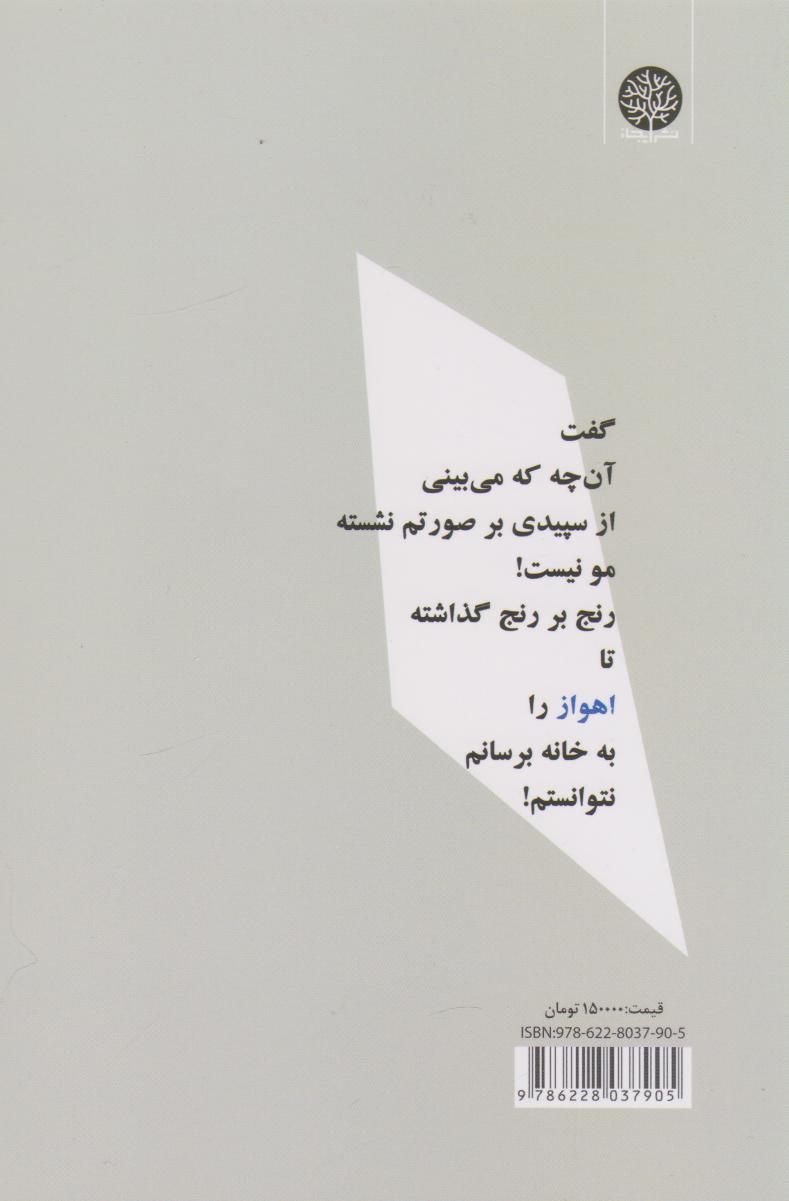 نشر ایجاز
گفت
آن‌چه که می‌بینی
از سپیدی بر صورتم نشسته
مو نیست!
رنج بر رنج گذاشته
تا
اهواز را
به خانه برسانم
نتوانستم!
قیمت:۱۵۰۰۰۰ تومان
ISBN:978-622-8037-90-5
9 786228 037905